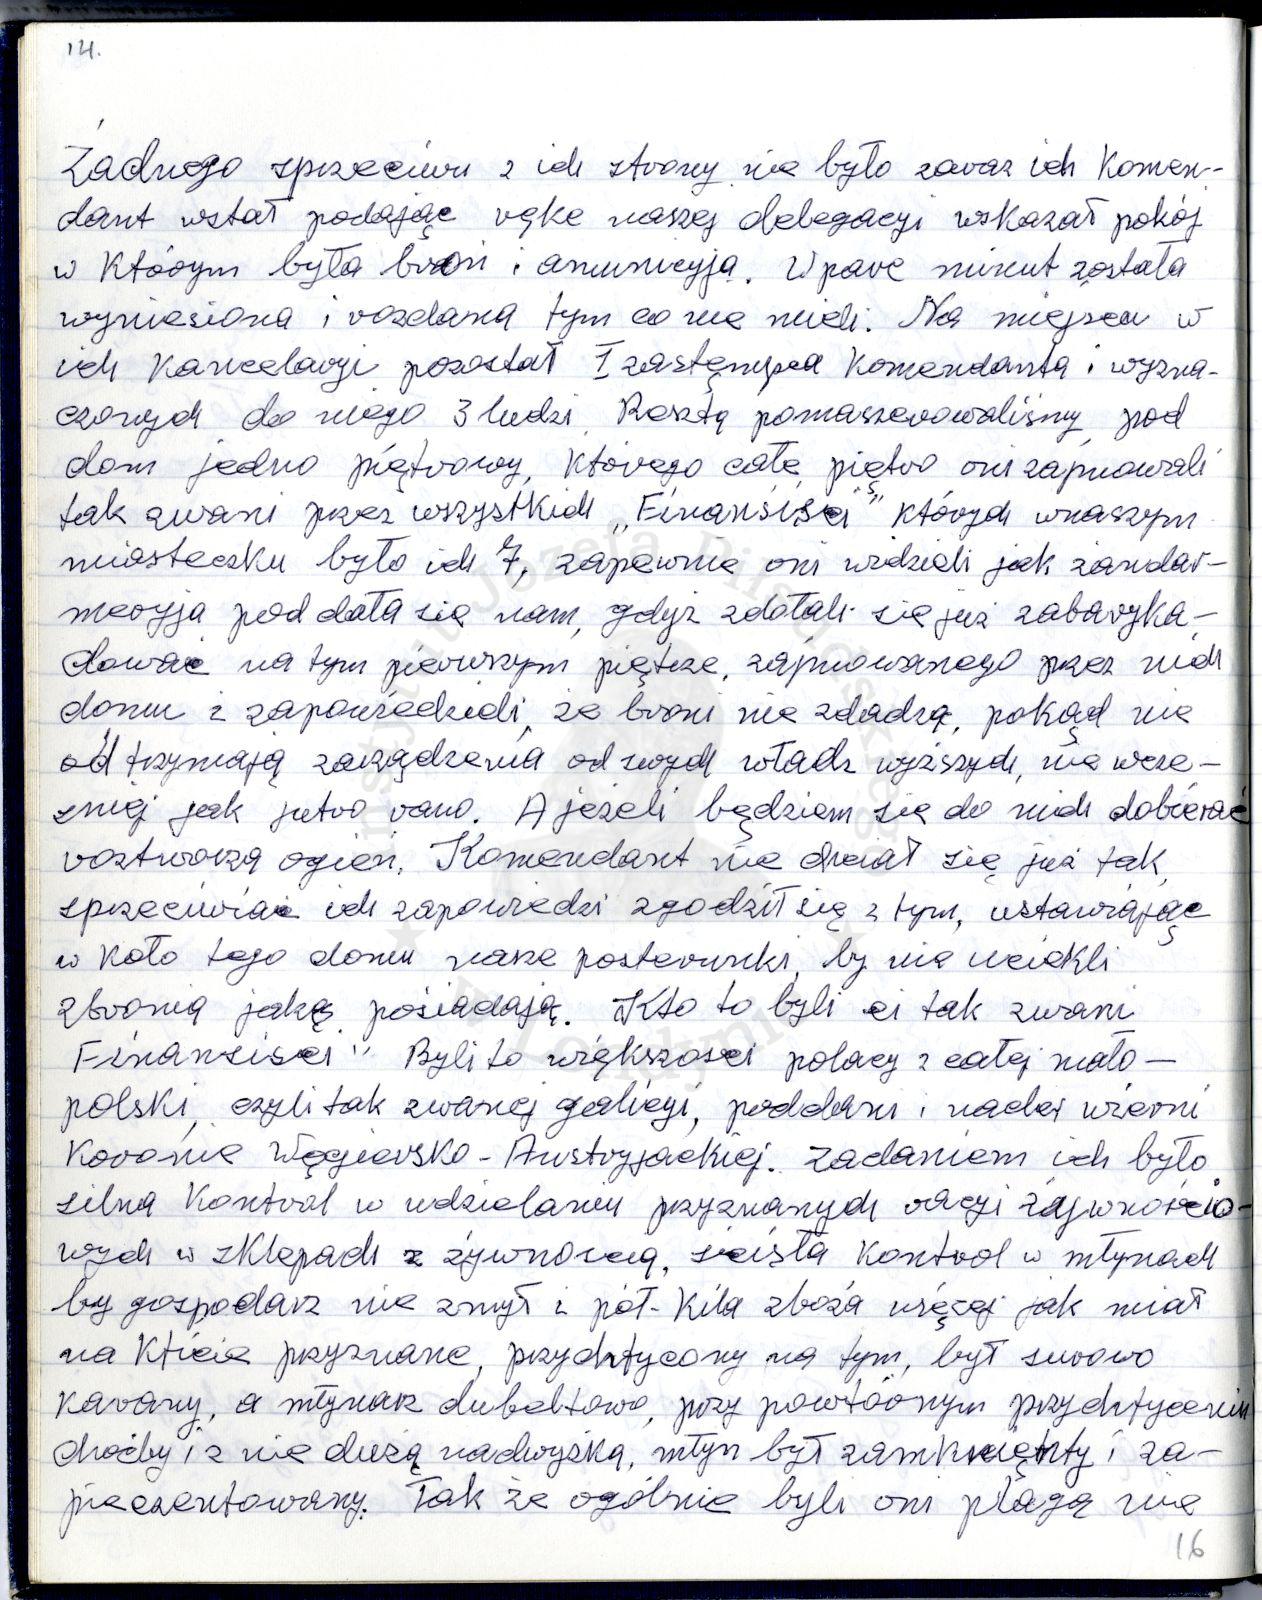 14.
Żadnego sprzeciwu z ich strony nie było zaraz ich Komen-
dant wstał podając rękę naszej delegacyi wskazał pokój
w którym była broń i amunicyja. W parę minut została
wyniesiona i rozdana tym co nie mieli. Na miejscu w
ich Kancelaryi pozostał I zastempca Komendanta i wyzna-
czonych do niego 3 ludzi. Resztą pomaszerowaliśmy pod
dom jedno piętrowy, którego całe piętro oni zajmowali
tak zwani przez wszystkich „Finansiści" których w naszym
miasteczku było ich 7, zapewnie oni widzieli jak żandar-
meryja poddała się nam, gdyż zdołali się już zabaryka-
dować na tym pierwszym piętrze, zajmowanego przez nich
domu i zapowiedzieli, że broni nie zdadzą, pokąd nie
otrzymają zarządzenia od swych władz wyższych, nie wcze-
śniej jak jutro rano. A jeżeli będziem się do nich dobierać
roztworzą ogień. Komendant nie chciał się już tak
sprzeciwiać ich zapowiedzi zgodził się z tym, ustawiając
w koło tego domu nasze posterunki, by nie uciekli
z bronią jaką posiadają. Kto to byli ci tak zwani
Finansiści" Byli to większości polacy z całej mało-
polski, czyli tak zwanej galicyi, poddani i nader wierni
Koronie Węgiersko - Austryjackiej. Zadaniem ich było
silna Kontrol w udzielaniu przyznanych racyi żywnościo-
wych w sklepach z żywnością, ścisła kontrol w młynach
by gospodarz nie zmył i pół-kila zboża więcej jak miał
na kźicie przyznane, przychtycony na tym, był surowo
karany, a młynarz dubeltowo, przy powtórnym przychtyceniu
choćby i z nie dużą nadwyżką, młyn był zamknięty i za-
pieczentowany. Tak że ogólnie byli oni plagą nie
16